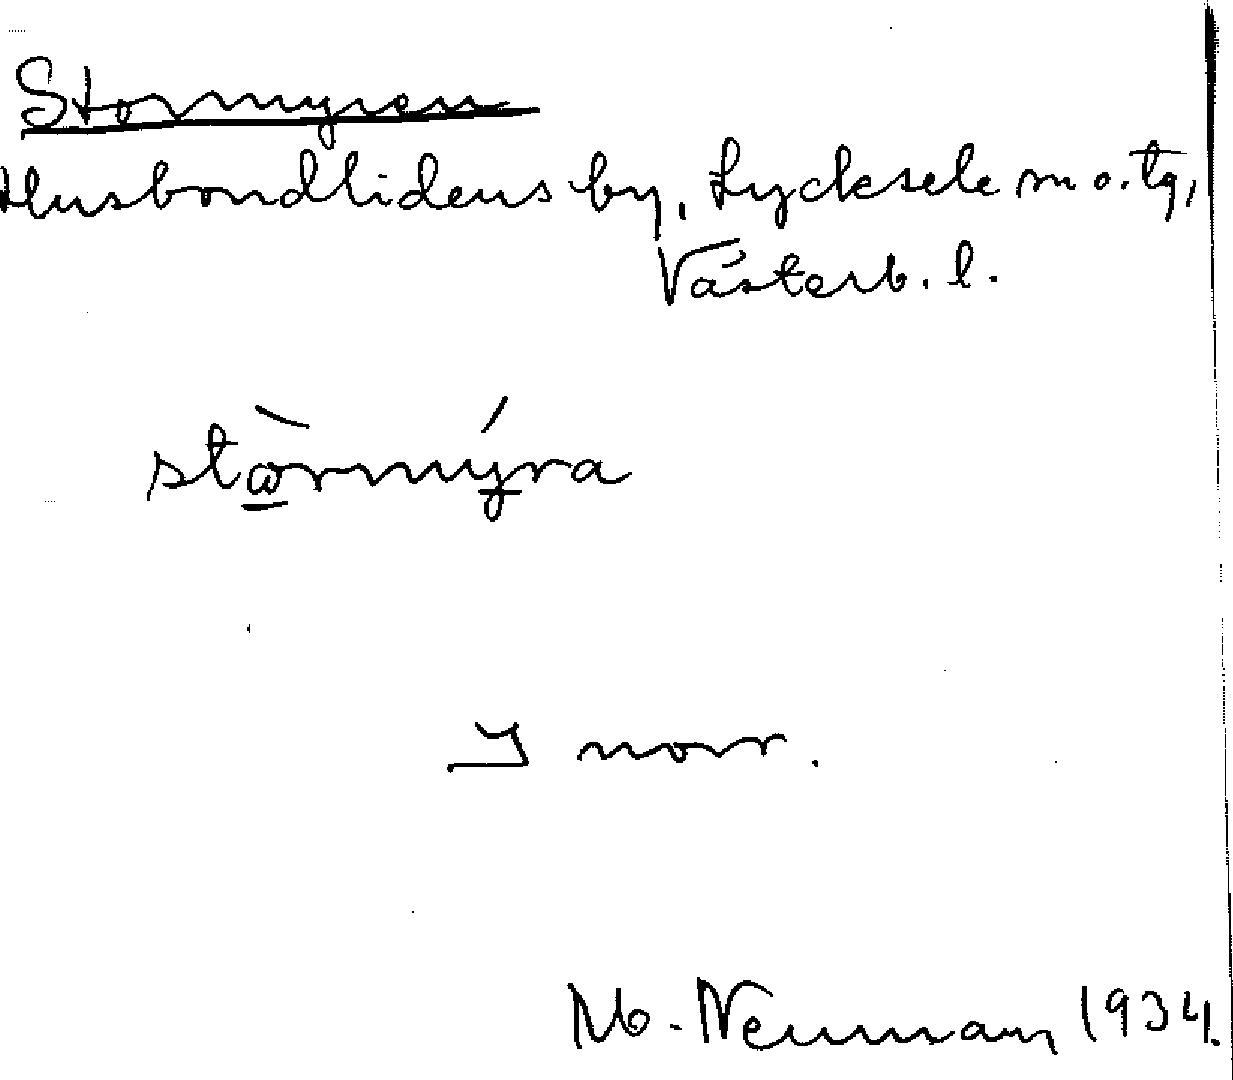 Stormyren
Husbondlidens by, Lycksele sn o. tg,
Västerb. l.
stòrmýra
I norr.
M. Neuman 1934.